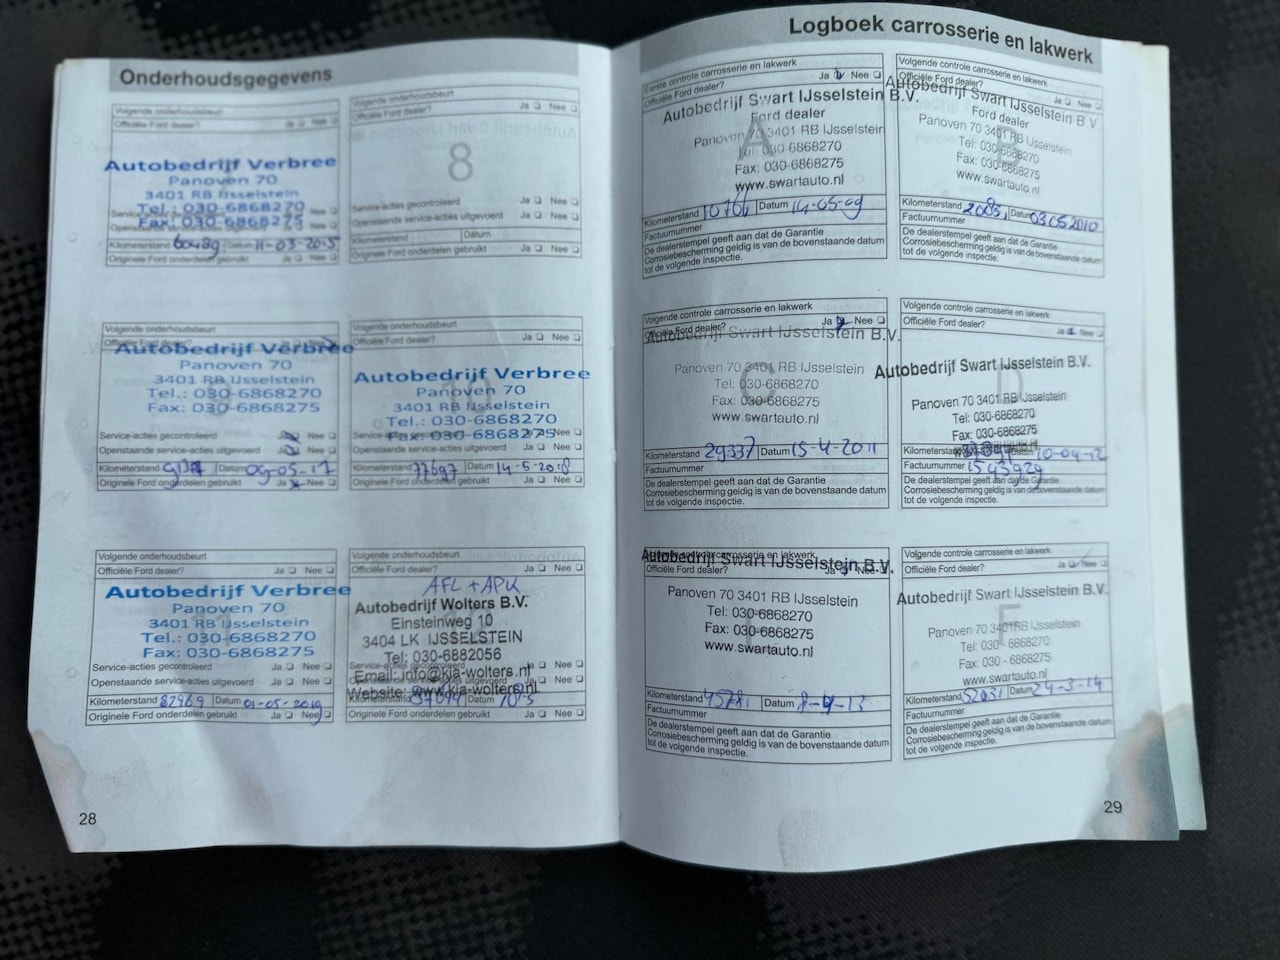 Onderhoudsgegevens
Volgende onderhoudsbeurt
Officiële Ford dealer? Ja Nee
Autobedrijf Verbree
Panoven 70
3401 RB IJsselstein
Tel.: 030-6868270
Fax: 030-6868275
Kilometerstand 60489 Datum 11-03-2015
Originele Ford onderdelen gebruikt Ja Nee
Volgende onderhoudsbeurt
Officiële Ford dealer? Ja Nee
8
Service-acties gecontroleerd Ja Nee
Openstaande service-acties uitgevoerd Ja Nee
Kilometerstand Datum
Originele Ford onderdelen gebruikt Ja Nee
Volgende onderhoudsbeurt
Officiële Ford dealer?
Autobedrijf Verbree
Panoven 70
3401 RB IJsselstein
Tel.: 030-6868270
Fax: 030-6868275
Service-acties gecontroleerd Ja Nee
Openstaande service-acties uitgevoerd Ja Nee
Kilometerstand Datum 09-05-17
Originele Ford onderdelen gebruikt Ja Nee
Volgende onderhoudsbeurt
Officiële Ford dealer? Ja Nee
Autobedrijf Verbree
Panoven 70
3401 RB IJsselstein
Tel.: 030-6868270
Fax: 030-6868275
Openstaande service-acties uitgevoerd Ja Nee
Kilometerstand 77697 Datum 14-5-2018
Originele Ford onderdelen gebruikt Ja Nee
Volgende onderhoudsbeurt
Officiële Ford dealer? Ja Nee
Autobedrijf Verbree
Panoven 70
3401 RB IJsselstein
Tel.: 030-6868270
Fax: 030-6868275
Service-acties gecontroleerd Ja Nee
Openstaande service-acties uitgevoerd Ja Nee
Kilometerstand 82969 Datum 01-05-2019
Originele Ford onderdelen gebruikt Ja Nee
Volgende onderhoudsbeurt
Officiële Ford dealer? Ja Nee
AFL + APK
Autobedrijf Wolters B.V.
Einsteinweg 10
3404 LK IJSSELSTEIN
Tel: 030-6882056
Email: info@kja-wolters.nl
Website: www.kja-wolters.nl
Kilometerstand Datum
Originele Ford onderdelen gebruikt Ja Nee
28
Logboek carrosserie en lakwerk
Eerste controle carrosserie en lakwerk
Officiële Ford dealer? Ja Nee
Autobedrijf Swart IJsselstein B.V.
Ford dealer
A
Panoven 70 3401 RB IJsselstein
Tel: 030-6868270
Fax: 030-6868275
www.swartauto.nl
Kilometerstand 10766 Datum 14-05-09
Factuurnummer
De dealerstempel geeft aan dat de Garantie
Corrosiebescherming geldig is van de bovenstaande datum
tot de volgende inspectie.
Volgende controle carrosserie en lakwerk
Officiële Ford dealer? Ja Nee
Autobedrijf Swart IJsselstein B.V.
Ford dealer
Panoven 70 3401 RB IJsselstein
Tel: 030-6868270
B
Fax: 030-6868275
www.swartauto.nl
Kilometerstand Datum 03 05 2010
Factuurnummer
De dealerstempel geeft aan dat de Garantie
Corrosiebescherming geldig is van de bovenstaande datum
tot de volgende inspectie.
Volgende controle carrosserie en lakwerk
Officiële Ford dealer? Ja Nee
Autobedrijf Swart IJsselstein B.V.
Panoven 70 3401 RB IJsselstein
C
Tel: 030-6868270
Fax: 030-6868275
www.swartauto.nl
Kilometerstand 29337 Datum 15-4-2011
Factuurnummer
De dealerstempel geeft aan dat de Garantie
Corrosiebescherming geldig is van de bovenstaande datum
tot de volgende inspectie.
Volgende controle carrosserie en lakwerk
Officiële Ford dealer? Ja Nee
Autobedrijf Swart IJsselstein B.V.
D
Panoven 70 3401 RB IJsselstein
Tel: 030-6868270
Fax: 030-6868275
Kilometerstand Datum 10-04-12
Factuurnummer 1543929
De dealerstempel geeft aan dat de Garantie
Corrosiebescherming geldig is van de bovenstaande datum
tot de volgende inspectie.
Autobedrijf Swart IJsselstein B.V.
Officiële Ford dealer? Ja Nee
Panoven 70 3401 RB IJsselstein
Tel: 030-6868270
Fax: 030-6868275
www.swartauto.nl
Kilometerstand Datum
Factuurnummer
De dealerstempel geeft aan dat de Garantie
Corrosiebescherming geldig is van de bovenstaande datum
tot de volgende inspectie.
Volgende controle carrosserie en lakwerk
Officiële Ford dealer? Ja Nee
Autobedrijf Swart IJsselstein B.V.
F
Panoven 70 3401RB IJsselstein
Tel: 030 - 6868270
Fax: 030 - 6868275
www.swartauto.nl
Kilometerstand Datum 24-3-14
Factuurnummer
De dealerstempel geeft aan dat de Garantie
Corrosiebescherming geldig is van de bovenstaande datum
tot de volgende inspectie.
29